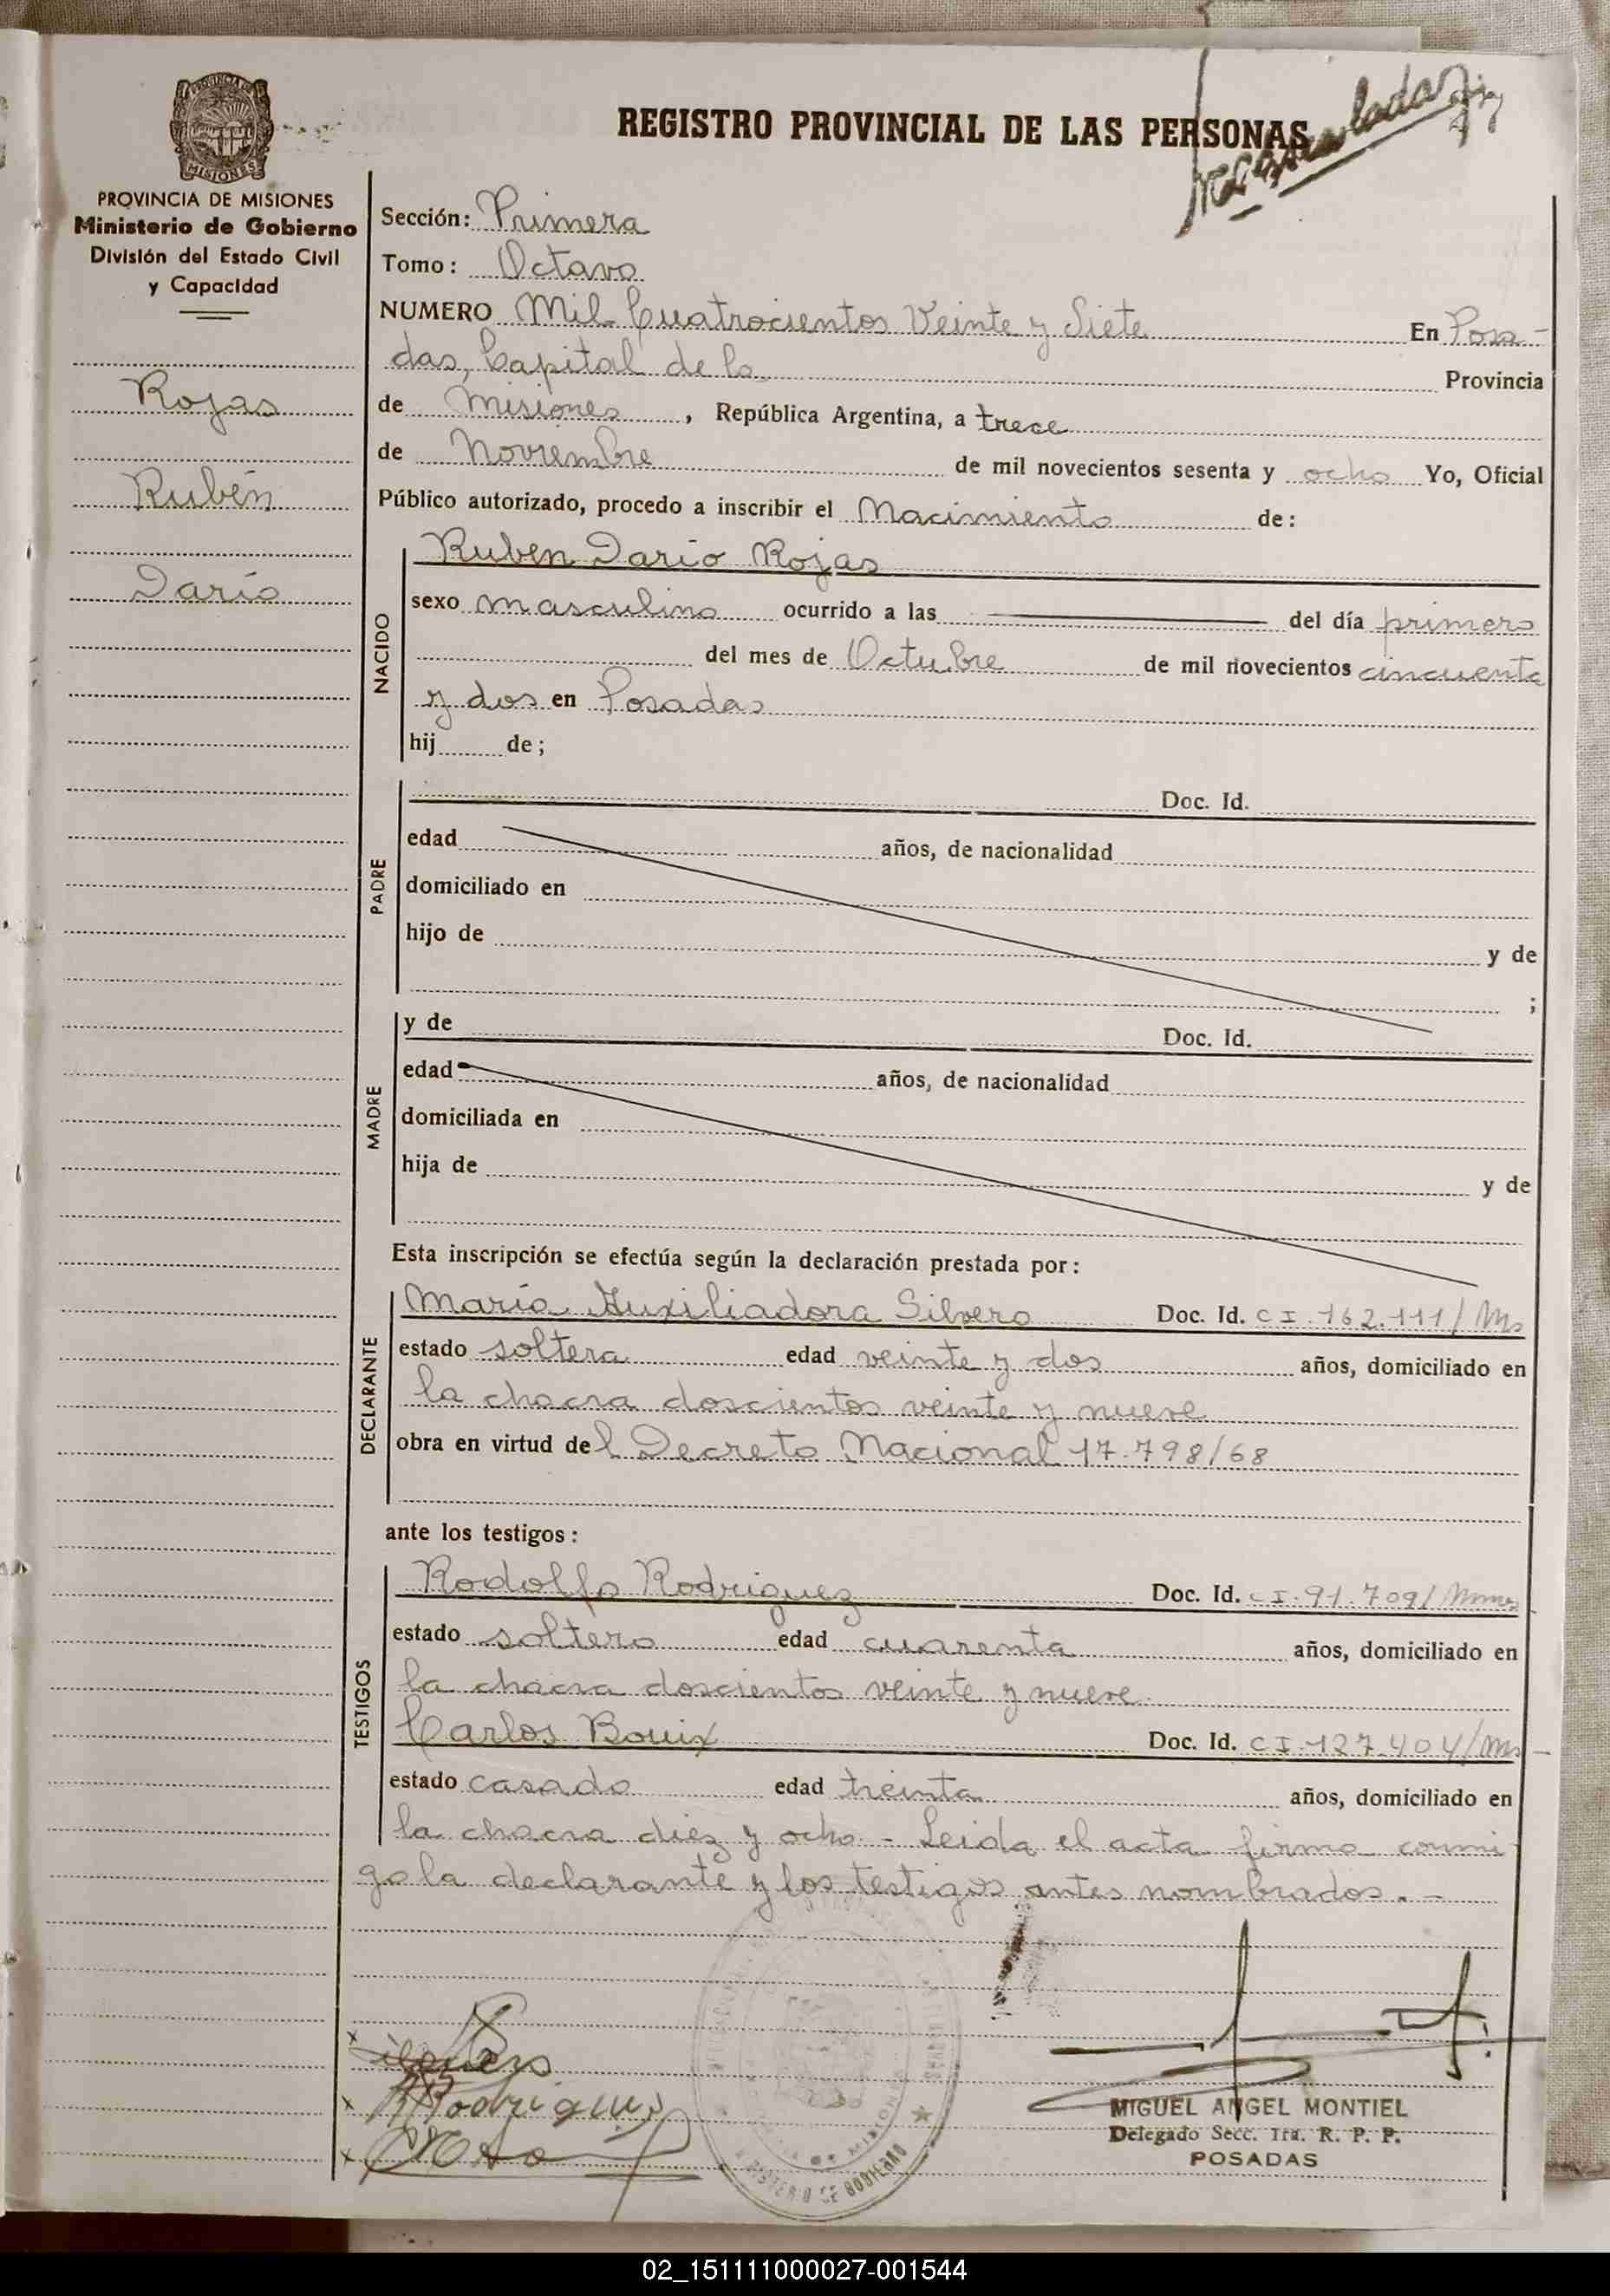 PROVINCIA DE MISIONES
Ministerio de Gobierno
División del Estado Civil
y Capacidad
Rojas
Rubén
Darío
REGISTRO PROVINCIAL DE LAS PERSONAS
Sección: Primera
Tomo: Octavo
NUMERO Mil Cuatrocientos Veinte y Siete En Posa-
das, Capital de la Provincia
de Misiones, República Argentina, a trece
de Noviembre de mil novecientos sesenta y ocho Yo, Oficial
Público autorizado, procedo a inscribir el Nacimiento de:
NACIDO
Ruben Dario Rojas
sexo masculino ocurrido a las del día primero
del mes de Octubre de mil novecientos cincuenta
y dos en Posadas
hij de;
PADRE
Doc. Id.
edad años, de nacionalidad
domiciliado en
hijo de y de
;
MADRE
y de Doc. Id.
edad años, de nacionalidad
domiciliada en
hija de y de
Esta inscripción se efectúa según la declaración prestada por:
DECLARANTE
María Auxiliadora Silvero Doc. Id. C I. 162.111/Ms
estado soltera edad veinte y dos años, domiciliado en
la chacra doscientos veinte y nueve
obra en virtud del Decreto Nacional 17.798/68
ante los testigos:
TESTIGOS
Rodolfo Rodriguez Doc. Id. C I. 91.709/
estado soltero edad cuarenta años, domiciliado en
la chacra doscientos veinte y nueve
Carlos Bouix Doc. Id. C I. 127.404/Ms
estado casado edad treinta años, domiciliado en
la chacra diez y ocho - Leida el acta firma conmi
go la declarante y los testigos antes nombrados. -
Rodriguez
MINISTERIO DE GOBIERNO
MIGUEL ANGEL MONTIEL
Delegado Secc. 1ra. R. P. P.
POSADAS
02_151111000027-001544